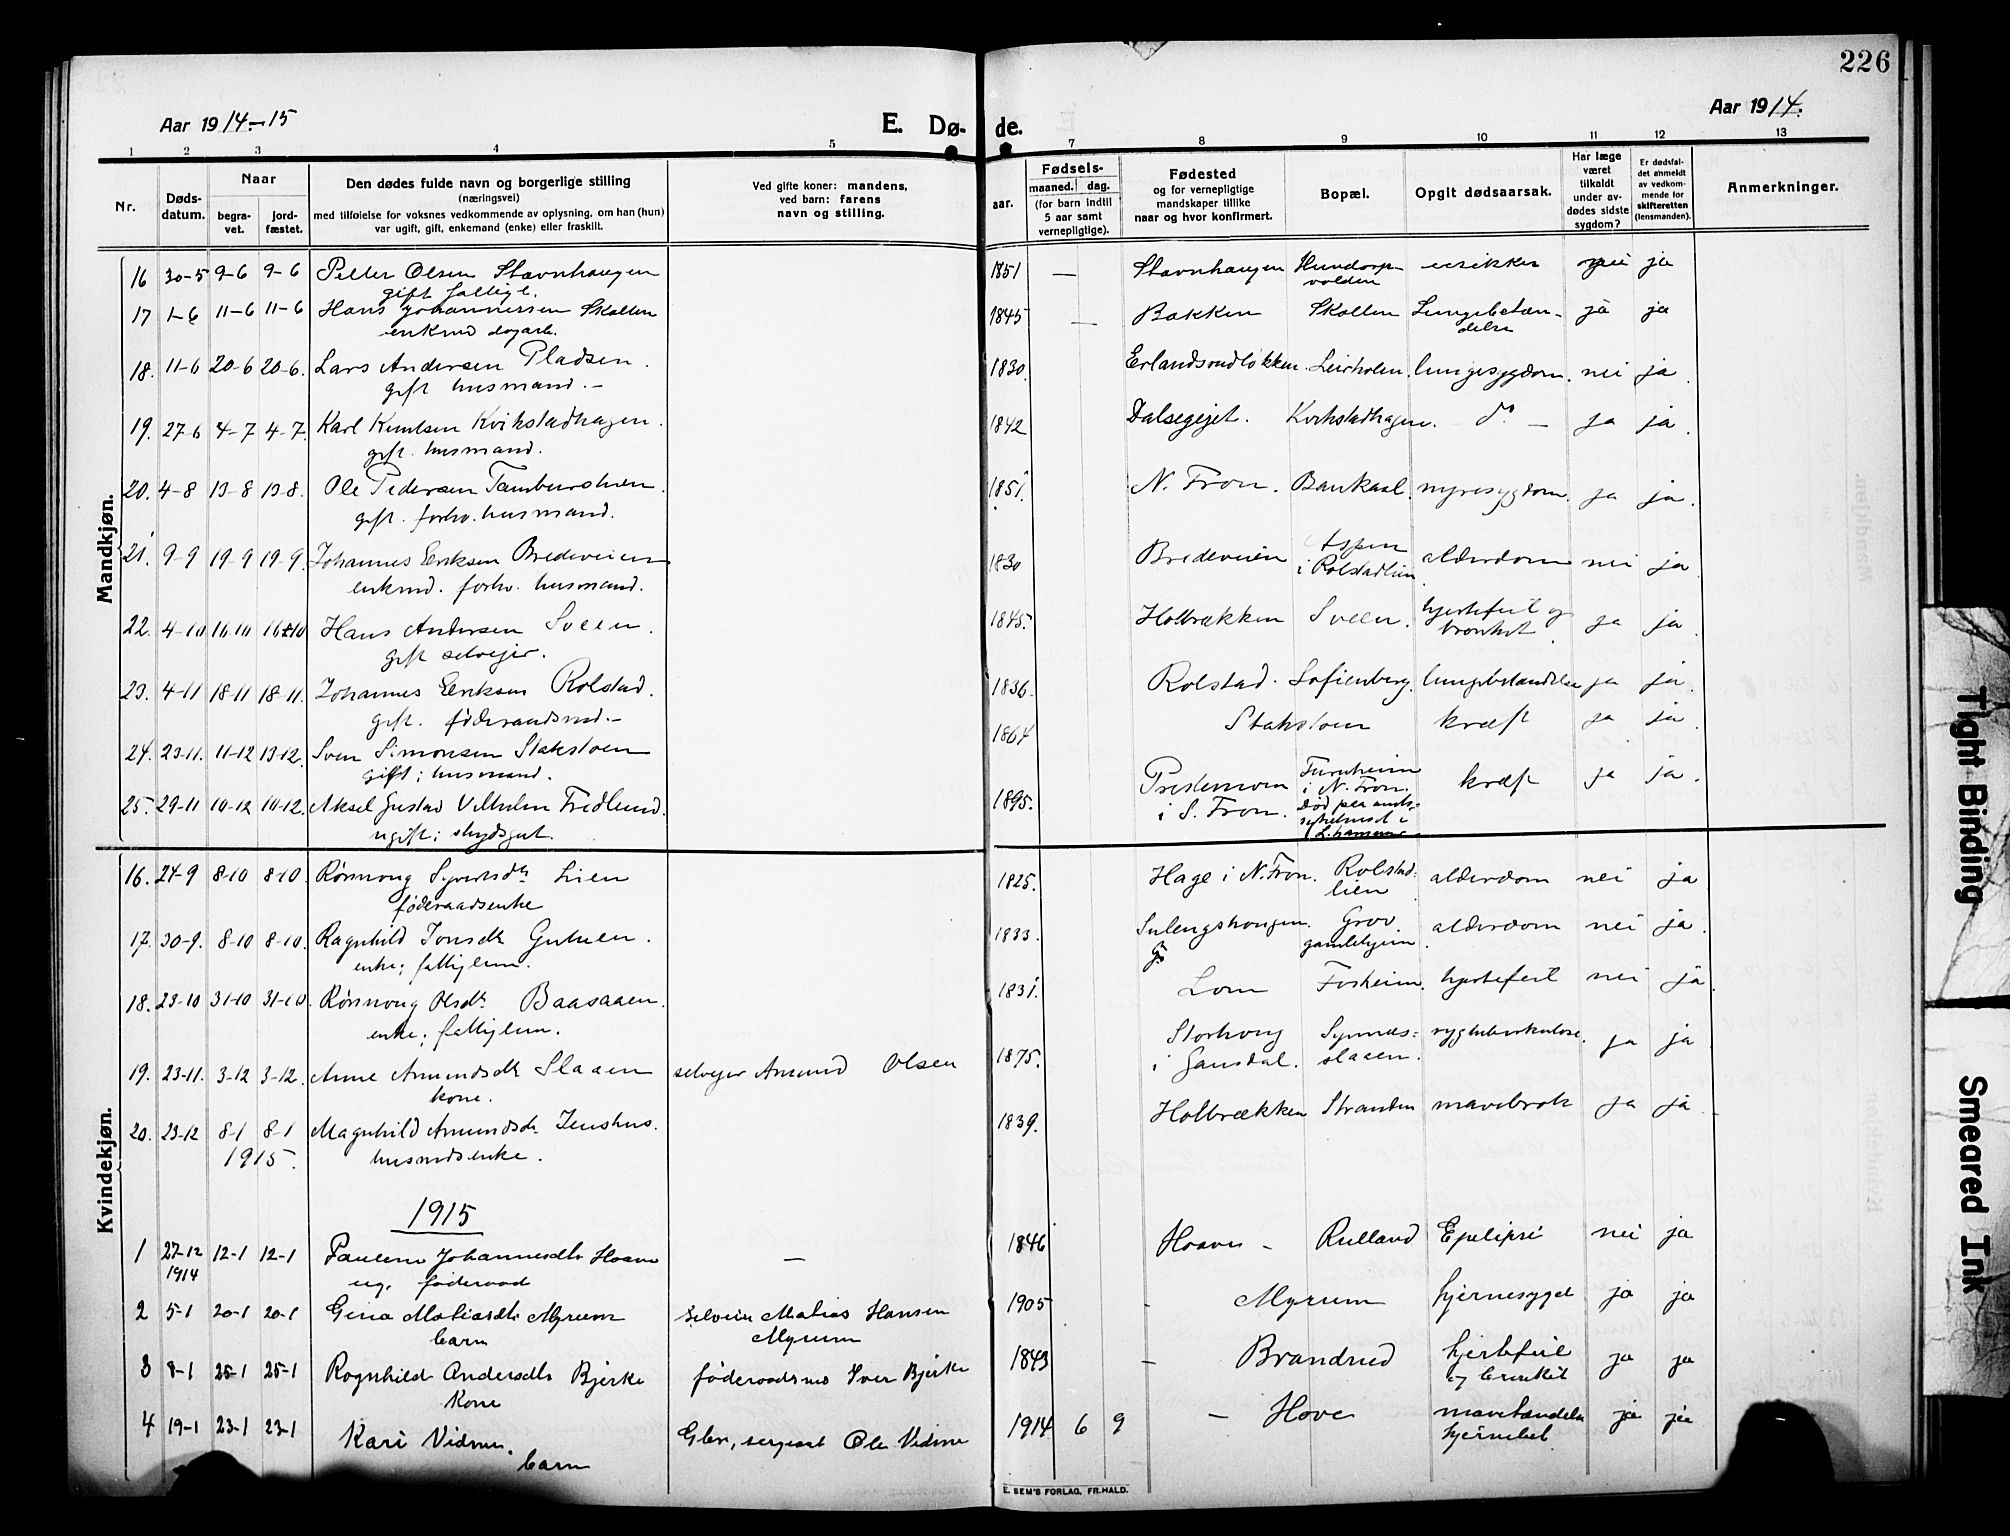 226
Aar 1914-15
E. Dø-
de.
Aar 1914.
1 2 3 4 5 7 8 9 10 11 12 13
Nr.
Døds-
datum.
Naar
begra-
vet.
jord-
fæstet.
Den dødes fulde navn og borgerlige stilling
(næringsvei)
med tilføielse for voksnes vedkommende av oplysning, om han (hun)
var ugift, gift, enkemand (enke) eller fraskilt.
Ved gifte koner: mandens,
ved barn: farens
navn og stilling.
Fødsels-
aar.
maaned. dag.
(for barn indtil
5 aar samt
vernepligtige).
Fødested
og for vernepligtige
mandskaper tillike
naar og hvor konfirmert.
Bopæl.
Opgit dødsaarsak.
Har læge
været
tilkaldt
under av-
dødes sidste
sygdom?
Er dødsfal-
det anmeldt
av vedkom-
mende for
skifteretten
(lensmanden).
Anmerkninger.
Mandkjøn.
16 30-5 9-6 9-6 Petter Olsen Stavnhaugen 1851 — Stavnhaugen Hundorp- usikker nei ja
gift fattigl. volden
17 1-6 11-6 11-6 Hans Johannessen Skollen 1845 — Bakken Skollen Lungebetæn- ja ja
enkmd dagarb. delse
18. 11-6 20-6 20-6. Lars Andersen Pladsen. 1830. Erlandsrudløkken. Leirholen. lungesygdom. nei ja.
gift husmand.-
19. 27-6 4-7 4-7. Karl Knutsen Kvikstadhagen. 1842 Dalsegejet. Kvikstadhagen. do — ja ja.
gift. husmand.
20. 4-8 13-8 13-8. Ole Pedersen Tamburstuen. 1851. N. Fron. Baukaal nyresygdom. ja ja.
gift. forhv. husmand.
21. 9-9 19-9 19-9. Johannes Eriksen Bredeveien 1830 Bredeveien Aspen alderdom nei ja
enkmd. forhv. husmand. i Rolstadlien.
22. 4-10 16-10 16-10 Hans Andersen Sveen. 1845. Holbrækken Sveen. hjertefeil og ja ja.
gift selveier. bronkit.
23. 4-11 18-11 18-11. Johannes Eriksen Rolstad. 1836. Rolstad. Sofienberg. lungebetændelse ja ja.
gift. føderaadsmd.-
24. 23-11. 11-12 13-12. Sven Simonsen Stakstoen 1864 Stakstoen kræft ja ja.
gift; husmand.
25. 29-11 10-12 10-12. Aksel Gustad Vilhelm Fredlund. 1895. Prestemoen Furuheim kræft ja ja.
ugift; skydsgut. i S. Fron. i N. Fron.
død paa amts-
sykehuset i
L.hammer
Kvindekjøn.
16. 24-9 8-10 8-10. Rønnoug Syversdtr Lien 1825. Hage i N. Fron. Rolstad- alderdom nei ja
føderaadsenke lien
17. 30-9. 8-10 8-10. Ragnhild Jonsdtr Gutuen. 1833. Grov. alderdom nei ja.
enke; fattiglem. gamlehjem.
18. 23-10 31-10 31-10 Rønnoug Olsdtr Baasaaen. 1831. Lom Forheim. hjertefeil nei ja.
enke; fattiglem.
19. 23-11. 3-12 3-12. Anne Amundsdtr Slaaen selveier Amund Olsen 1875. Storhoug Synnøs- rygtuberkulose. ja ja
kone. i Gausdal. slaaen.
20. 23-12 8-1 8-1 Magnhild Amundsdtr. Jenshus. 1839. Holbrækken Stranden mavebrok ja ja
1915. husmdsenke.
1915
1 27-12 12-1 12-1 Pauline Johannesdtr Hoave — 1846 Hoave - Rulland Epelipsi nei ja
1914 ug. føderaad
2 5-1 20-1 20-1 Gina Matiasdtr Myrum selveier Matias Hansen 1905 - Myrum hjernesygd ja ja
barn Myrum
3 8-1 25-1 25-1 Rognhild Andersdtr Bjerke føderaadsmd Iver Bjerke 1843 - Brandrud hjertefeil ja ja
Kone og bronkit
4 19-1 23-1 23-1 Kari Vidme. Gbr., sergeant Ole Vidme 1914 6 9 - Hove ja ja
barn
E. SEM'S FORLAG, FR.HALD.
Tight Binding
Smeared Ink